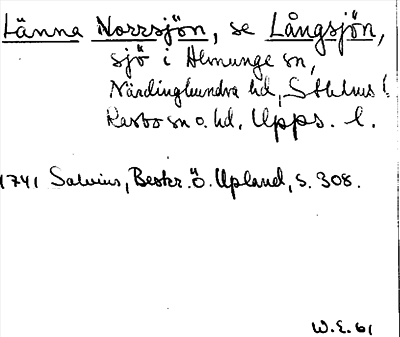 Länna Norrsjön, se Långsjön,
sjö i Almunge sn,
Närdinghundra hd, Sthlms l.
Rasbo sn o. hd, Upps. l.
1741 Salvius, Beskr. ö. Upland, s. 308.
W.E. 61